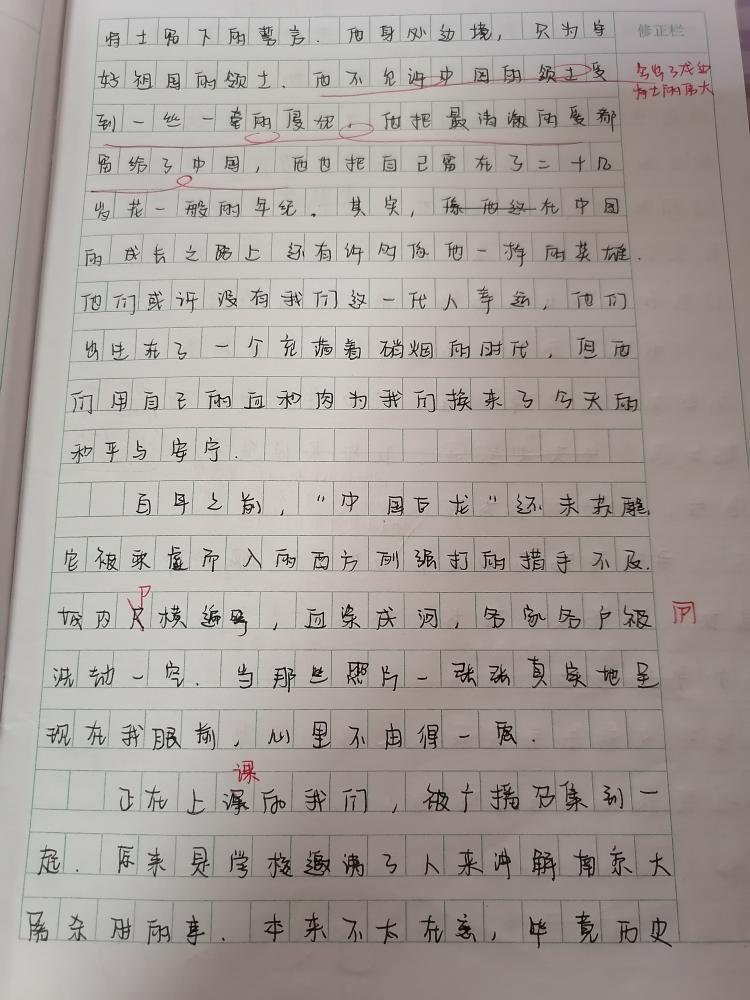 将士留下的誓言.他身处边境,只为守
修正栏
好祖国的领土.他不允许中国的领土受
到一丝一毫的侵犯.他把最清澈的爱都
留给了中国,而也把自己留在了二十几
岁花一般的年纪.其实,像他这在中国
的成长之路上还有许多像他一样的英雄.
他们或许没有我们这一代人幸运,他们
出生在了一个充满着硝烟的时代,但他
们用自己的血和肉为我们换来了今天的
和平与安宁.
百年之前,“中国巨龙”还未苏醒,
它被乘虚而入的西方列强打的措手不及.
尸
城内尸横遍野,血染成河,各家各户被
洗劫一空.当那些照片一张张真实地呈
现在我眼前,心里不由得一震.
课
正在上课的我们,被广播召集到一
起.原来是学校邀请了人来讲解南京大
屠杀时的事.本来不太在意,毕竟历史